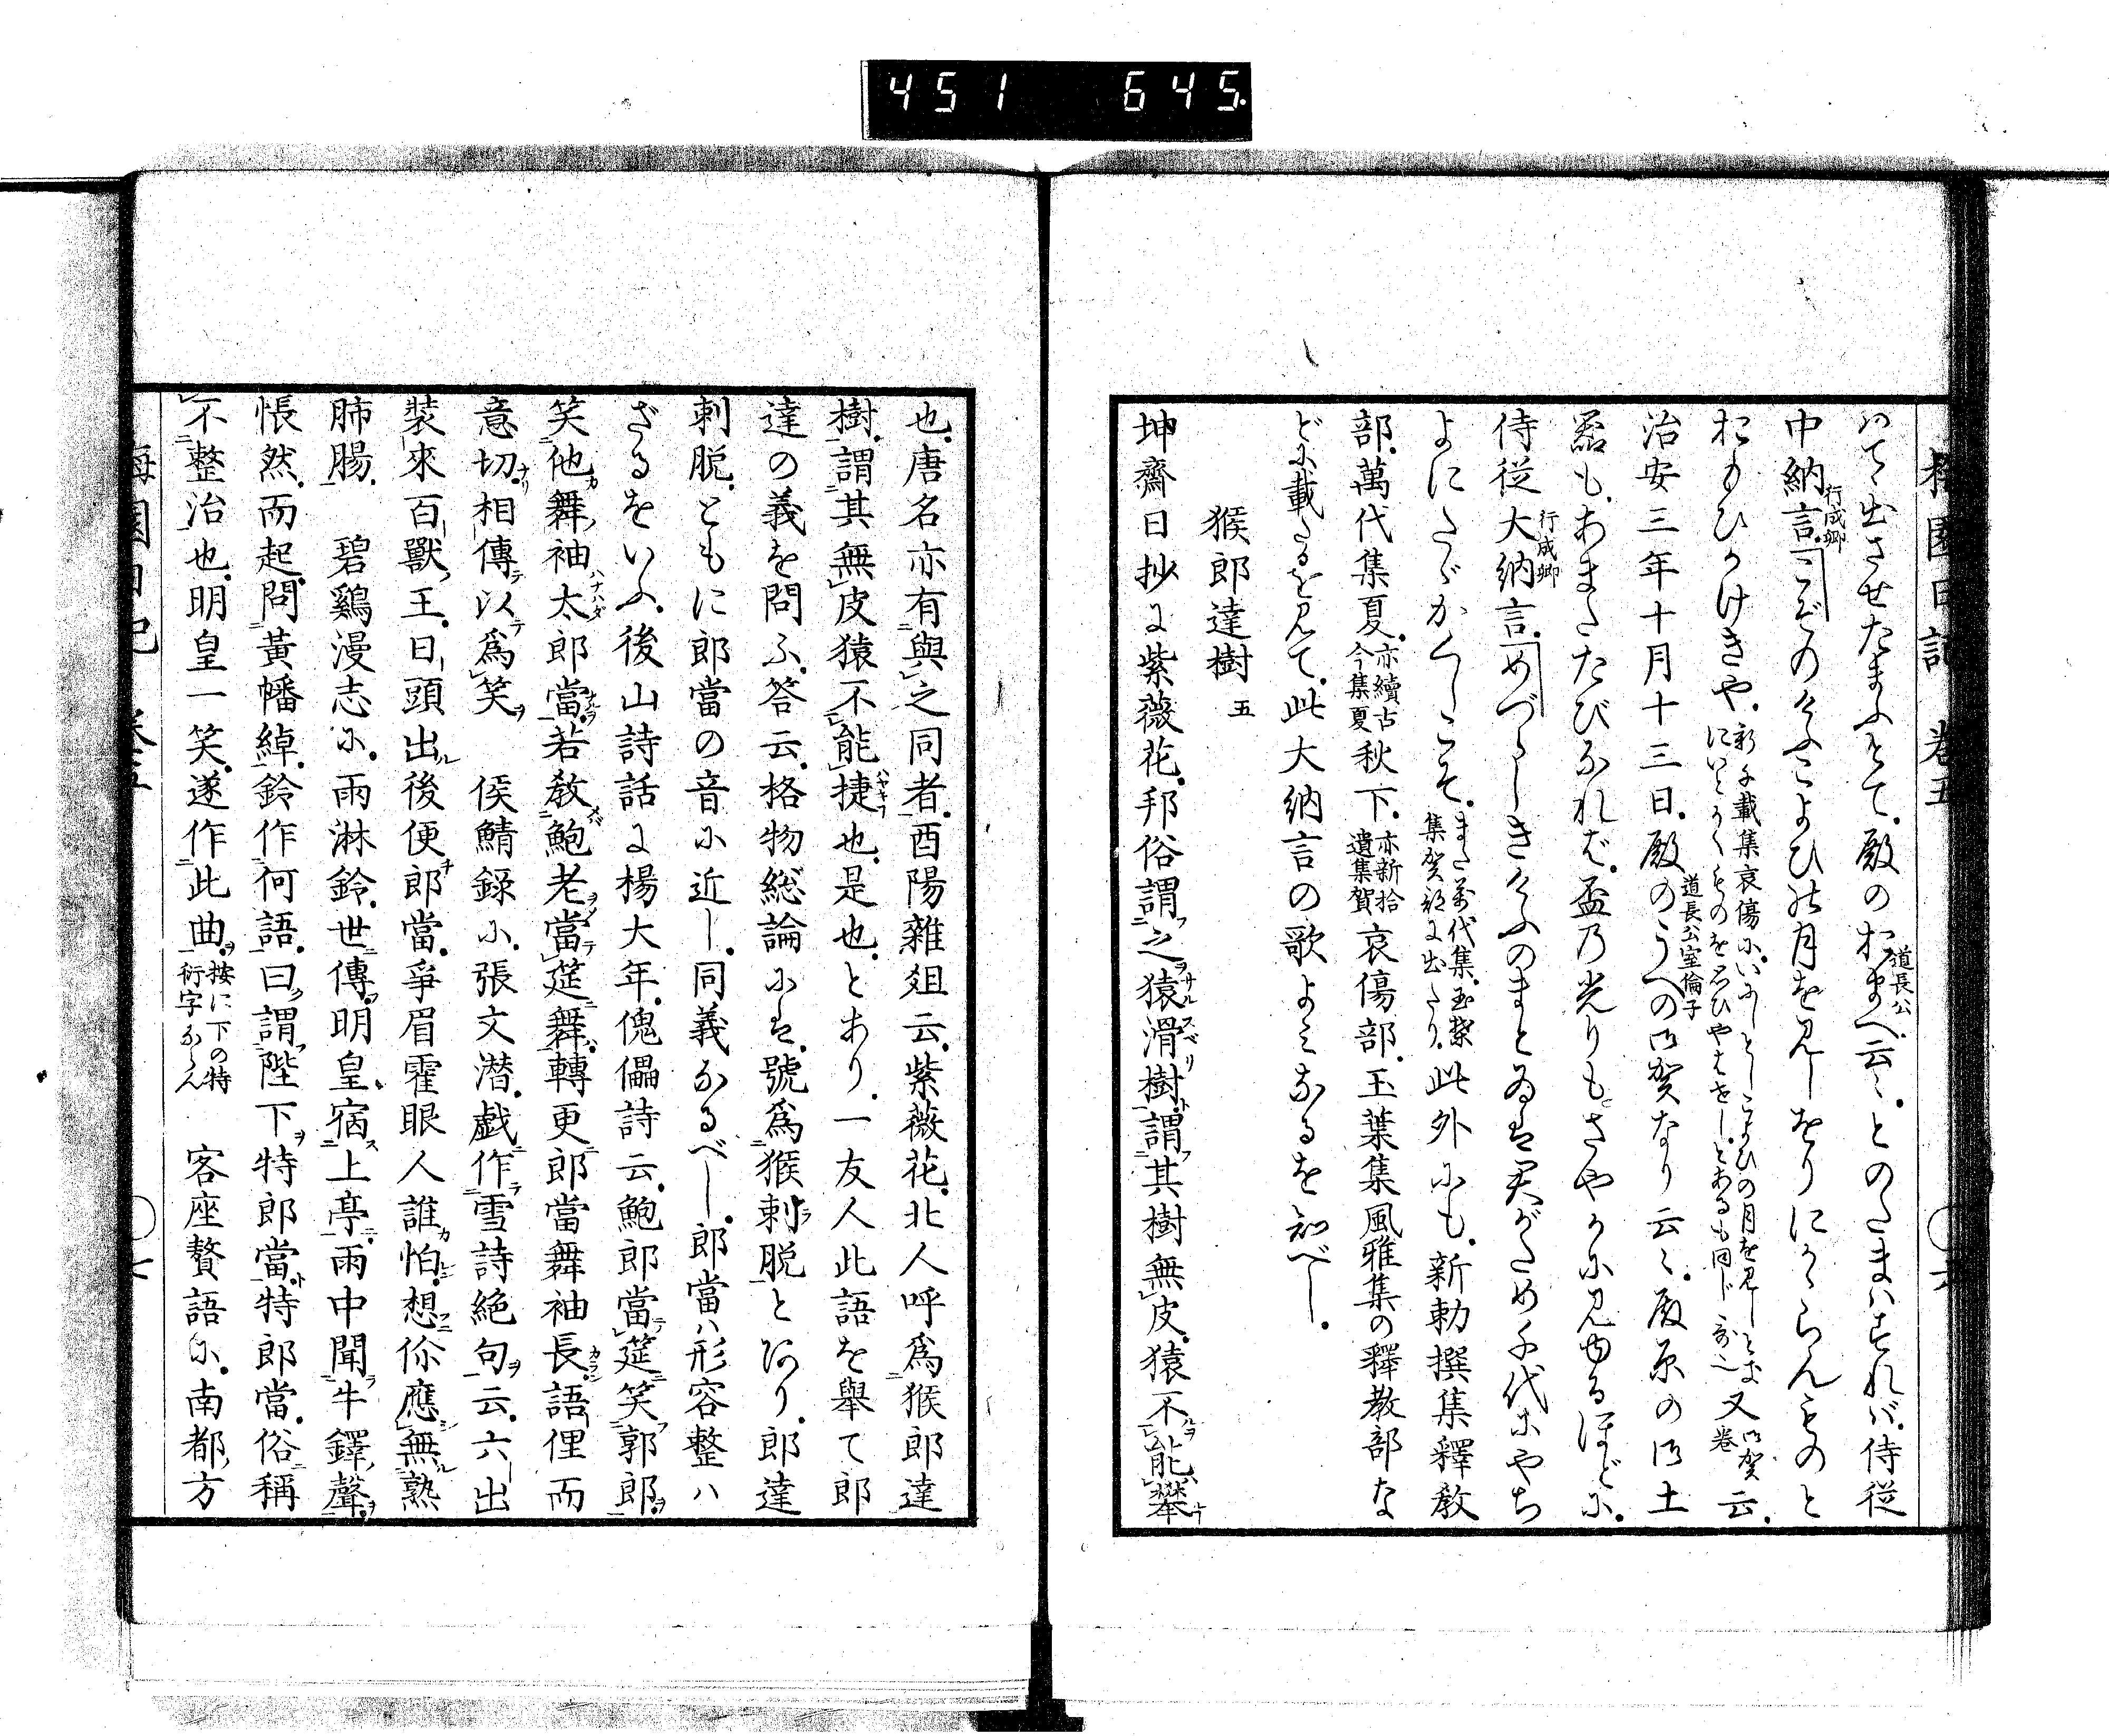 451 645.
梅園日記 卷五
いて出させたまふとて。殿のおまへ云〻。とのたまはすれバ。侍從
道長公
中納言。こぞのけふこよひの月を見しをりにかゝらんものと
行成卿
おもひかけきや。新千載集哀傷に。いにしとしこよひの月を見しとき にいかゝくものをおもひやはせし。とあるも同じ 又御賀卷云。
治安三年十月十三日。殿のうへの御賀なり云〻。殿原の御土
道長公室倫子
器も。あまたたびなれば。盃の光りもさやかに見ゆるほどに。
侍從大納言。めづらしきけふのまとゐは君がため千代にやち
行成卿
よにたゞかくしこそ。また萬代集。玉葉 集賀部に出たり。此外にも。新勅撰集釋敎
部。萬代集夏。亦續古今集夏 秋下。亦新拾遺集賀 哀傷部。玉葉集風雅集の釋敎部な
どに載たるを見て。此大納言の歌よみなるを知べし。
猴郎達樹 五
坤齋日抄に紫薇花。邦俗謂之猿滑樹。謂其樹無皮。猿不能攀
也。唐名亦有與之同者。酉陽雜俎云。紫薇花。北人呼爲猴郎達
樹。謂其無皮猿不能捷也。是也。とあり。一友人此語を舉て郎
達の義を問ふ。答云。格物総論に。號爲猴刺脱とあり。郎達
刺脱。ともに郎當の音に近し。同義なるべし。郎當ハ形容整ハ
ざるをいふ。後山詩話に楊大年。傀儡詩云。鮑郎當筵笑郭郎。
笑他舞袖太郎當。若敎鮑老當筵舞。轉更郎當舞袖長。語俚而
意切。相傳以爲笑 侯鯖録に。張文潜。戯作雪詩絶句云。六出
装來百獸王。日頭出後便郎當。爭眉霍眼人誰怕。想伱應無熟
肺腸。 碧鷄漫志に。雨淋鈴。世傳。明皇宿上亭。雨中聞牛鐸聲。
悵然而起。問黃幡綽。鈴作何語。曰謂陛下特郎當。特郎當。俗稱
不整治也。明皇一笑。遂作此曲。按に下の特 衍字ならん 客座贅語に。南都方
梅園日記 卷五 七